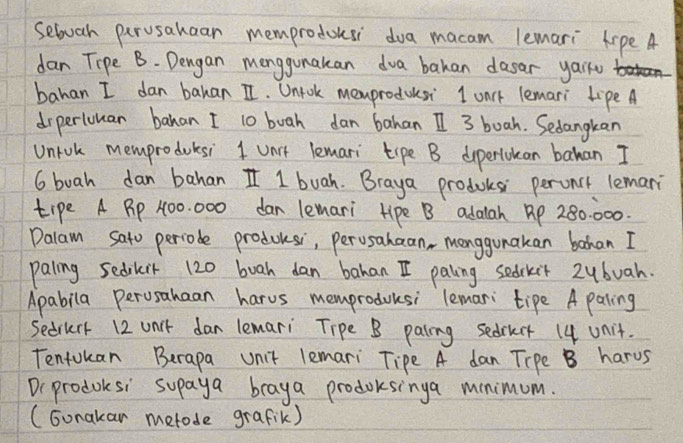 Sebuah perusahaan memproduksi dua macam lemari tipe A
dan Tipe B. Dengan menggunakan dua bahan dasar yaitu
bahan I dan bahan II. Untuk memproduksi 1 unit lemari tipe A
diperlukan bahan I 10 buah dan bahan II 3 buah. Sedangkan
Untuk memproduksi 1 unit lemari tipe B diperlukan bahan I
6 buah dan bahan II 1 buah. Braya produksi perunit lemari
tipe A Rp 400.000 dan lemari tipe B adalah Rp 280.000.
Dalam satu periode produksi, perusahaan menggunakan bahan I
paling sedikit 120 buah dan bahan II paling sedikit 24 buah.
Apabila perusahaan harus memproduksi lemari tipe A paling
Sedikit 12 unit dan lemari Tipe B paling sedikit 14 unit.
Tentukan Berapa unit lemari Tipe A dan Tipe B harus
Diproduksi supaya braya produksinya minimum.
(Gunakan metode grafik)